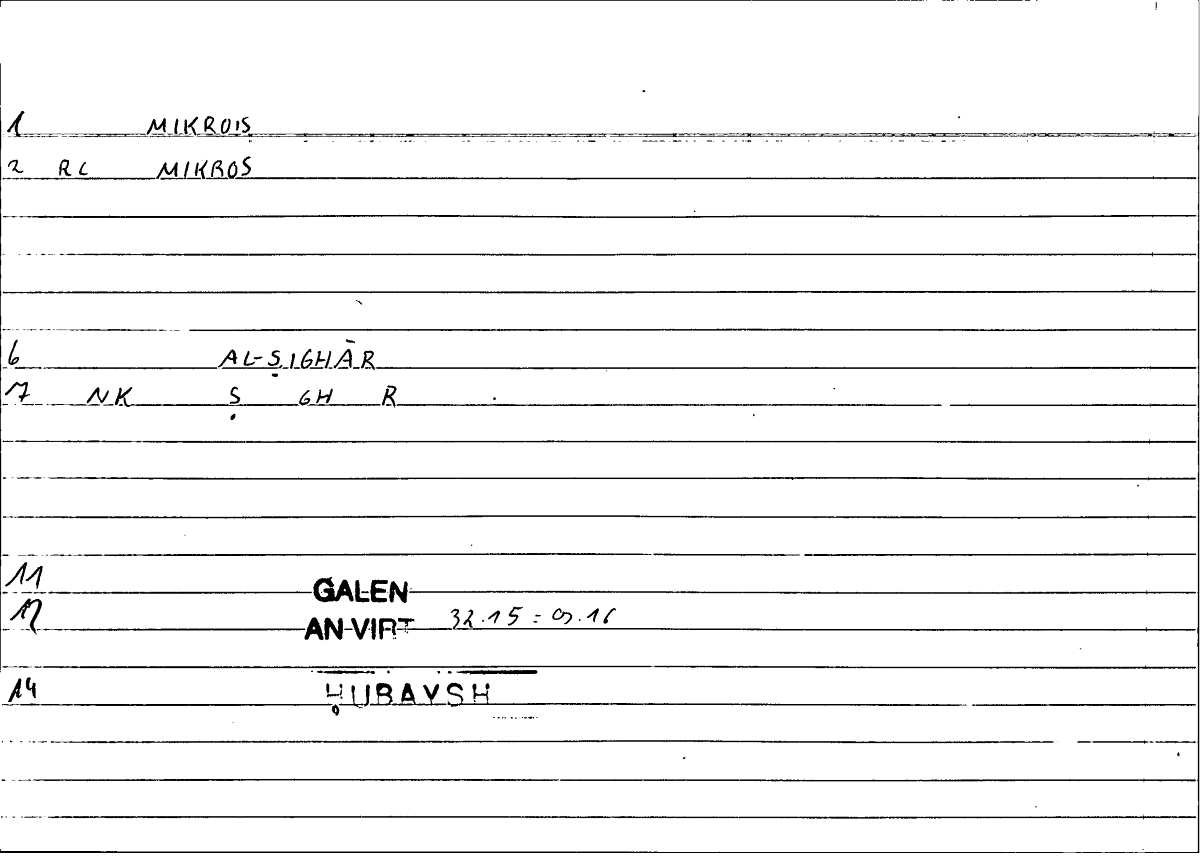 1 MIKROIS
2 RC MIKROS
6 AL-ṢIGHĀR
7 NK Ṣ GH R
11 GALEN
12 AN VIRT 32.15 = 09.16
14 ḤUBAYSH